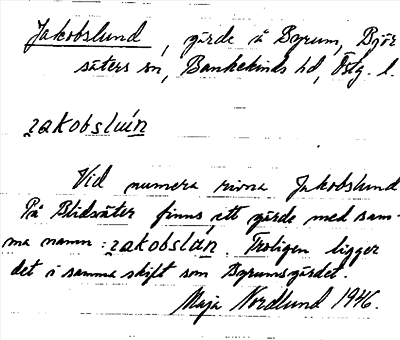 Jakobslund, gärde å Byrum, Björ
säters sn, Bankekinds hd, Östg. l.
jakobslún
Vid numera rivna Jakobslund
På Blidsäter finns ett gärde med sam-
ma namn: jakobslún. Troligen ligger
det i samma skift som Byrumsgärdet.
Maja Nordlund 1946.